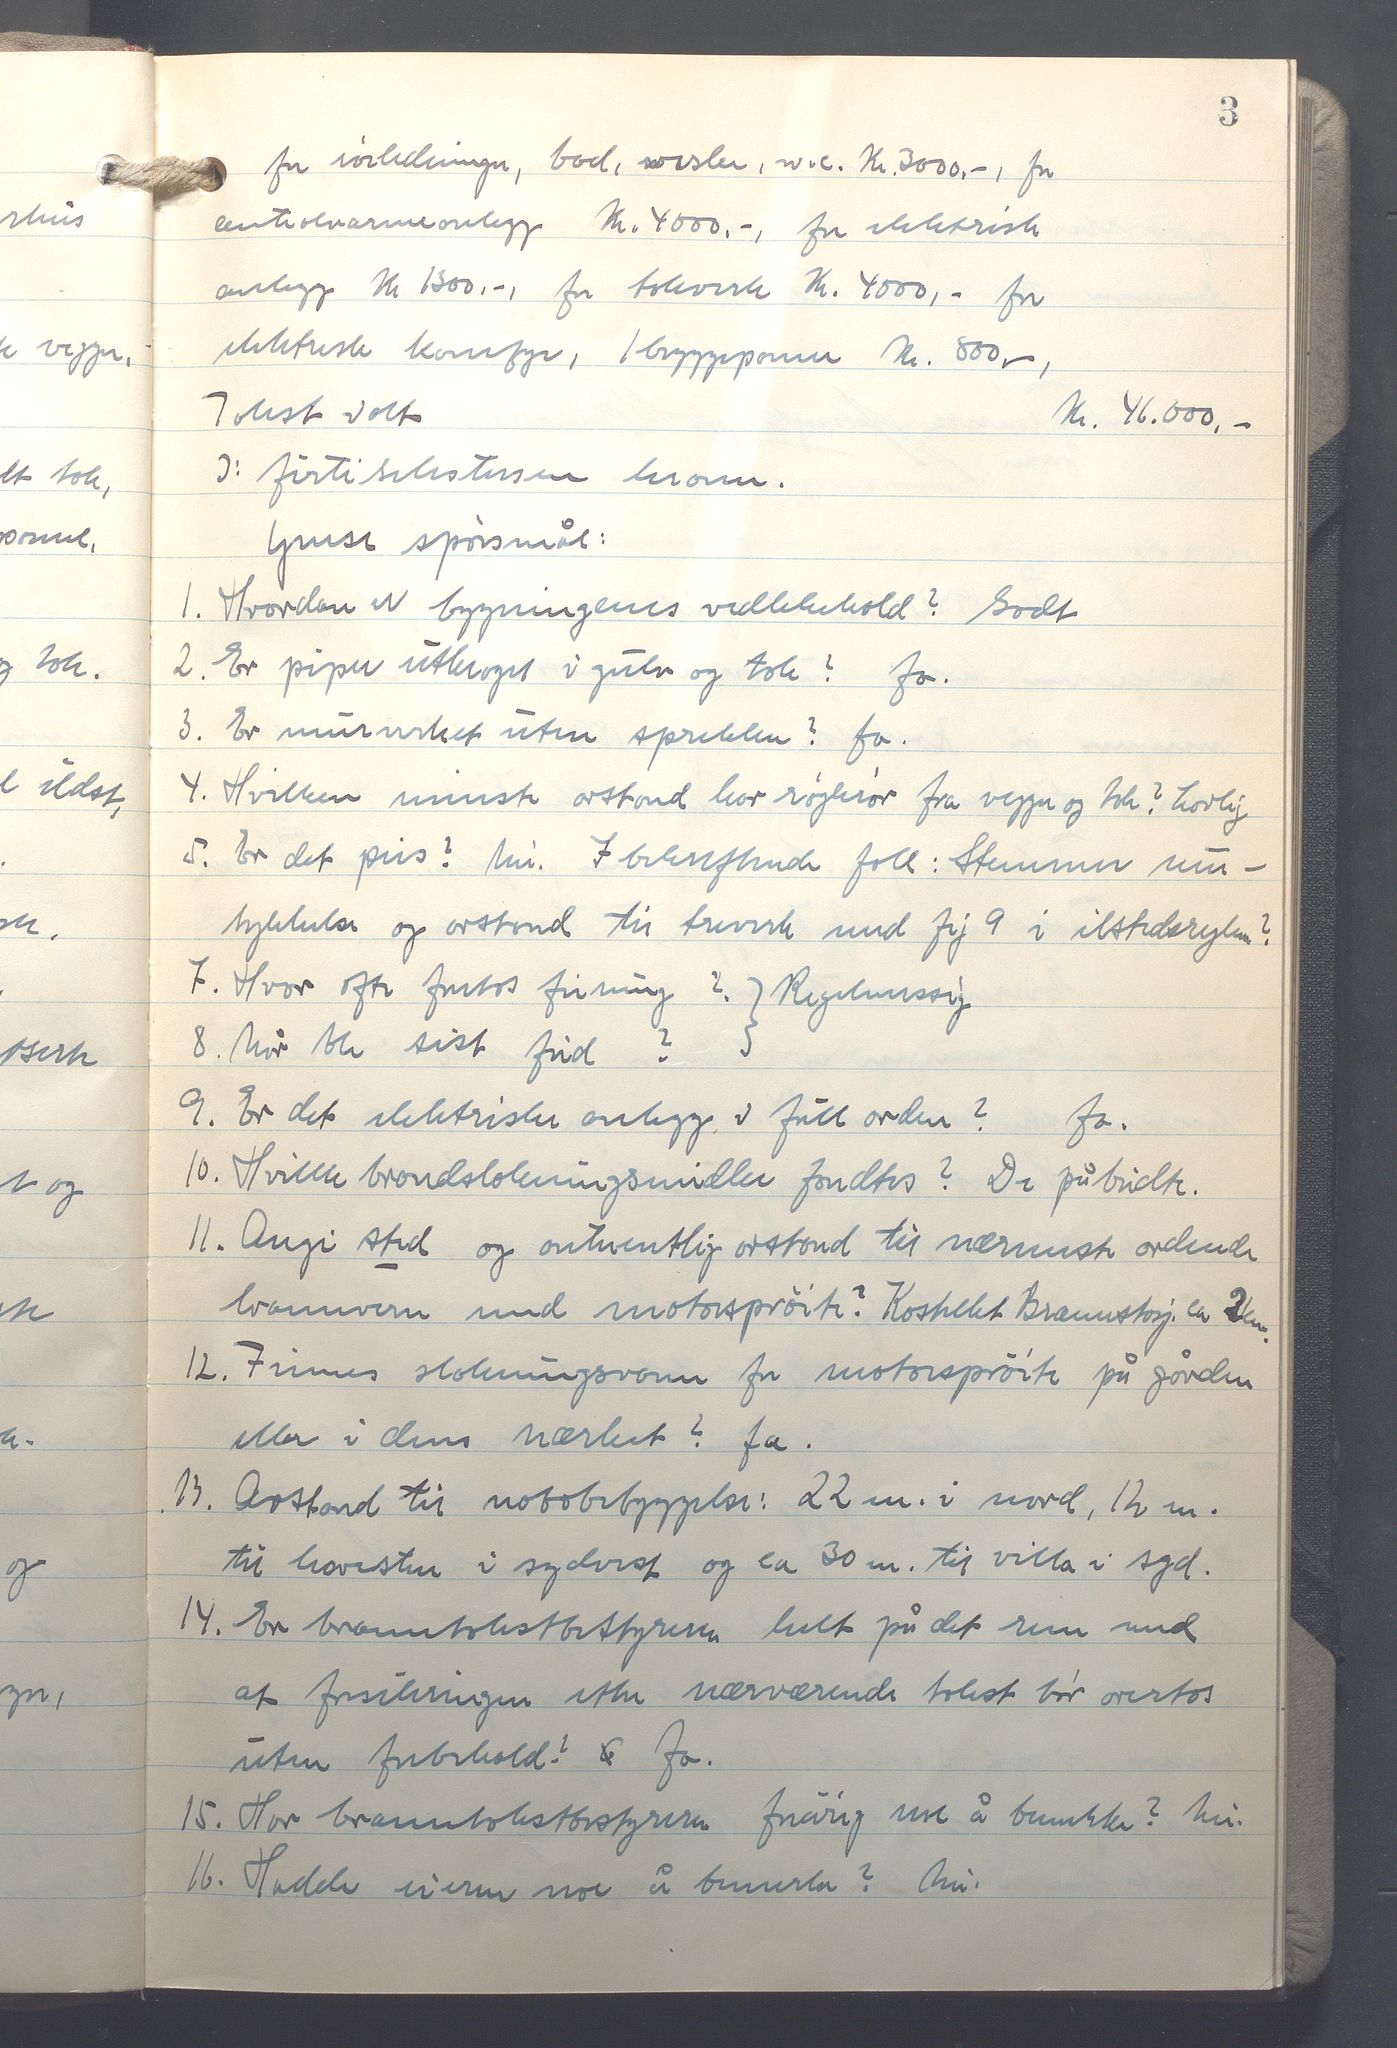 3
for rörledninger, bad, vasker, w.c. Kr. 3000.-, for
centralvarmeanlegg Kr. 4000.-, for elektrisk
anlegg Kr 1300.-, for takverk Kr. 4000,- for
elektrisk komfyr, 1 bryggepanne Kr. 800,-,
Takst i alt Kr. 46.000,-
ↄ:förtiseks tusen kroner.
Ymse spörsmål:
1. Hvordan er bygningenes vedlikehold? Godt
2. Er piper utkraget i gulv og tak? Ja.
3. Er murverket uten sprekker? Ja.
4. Hvilken minste avstand har rögrör fra vegger og tak? Lovlig
5. Er det peis? Nei. I bekreftende fall: Stemmer mur-
tykkelse og avstand til treverk med fig 9 i ilstedsreglene?
7. Hvor ofte foretas feining ?. } Regelmessig
8. Når ble sist feid ? }
9. Er det elektriske anlegg i full orden? Ja.
10. Hvilke brandslokningsmidler fandtes? De påbudte.
11. Angi sted og omtrentlig avstand til nærmeste ordende
brannvern med motorspröite? Kostellet Brannstasj. ca 2 km.
12. Finnes slokningsvann for motorspröite på gården
eller i dens nærhet? Ja.
13. Avstand til nabobebyggelse: 22 m. i nord, 12 m.
til havesten i sydvest og ca 30 m. til villa i syd.
14. Er branntakstbestyreren helt på det rene med
at forsikringen etter nærværende takst bör overtas
uten forbehold? Ja.
15. Har branntakstbestyreren forövrig noe å bemerke? Nei.
16. Hadde eieren noe å bemerke? Nei.
rhus
e vegger,
lt tak,
panne,
g tak.
l ildst,
sk.
t og
og